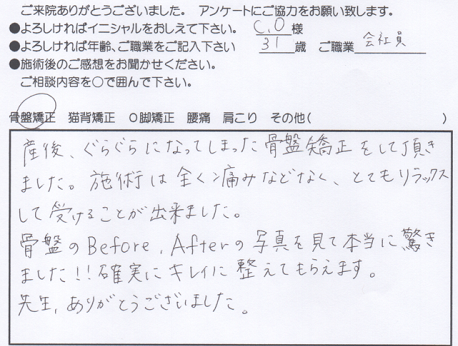 ご来院ありがとうございました。 アンケートにご協力をお願い致します。
●よろしければイニシャルをおしえて下さい。 C.O 様
●よろしければ年齢、ご職業をご記入下さい 31 歳 ご職業 会社員
●施術後のご感想をお聞かせください。
ご相談内容を○で囲んで下さい。
骨盤矯正 猫背矯正 O脚矯正 腰痛 肩こり その他( )
産後、ぐらぐらになってしまった骨盤矯正をして頂き
ました。施術は全く痛みなどなく、とてもリラックス
して受けることが出来ました。
骨盤のBefore,Afterの写真を見て本当に驚き
ました!!確実にキレイに整えてもらえます。
先生、ありがとうございました。